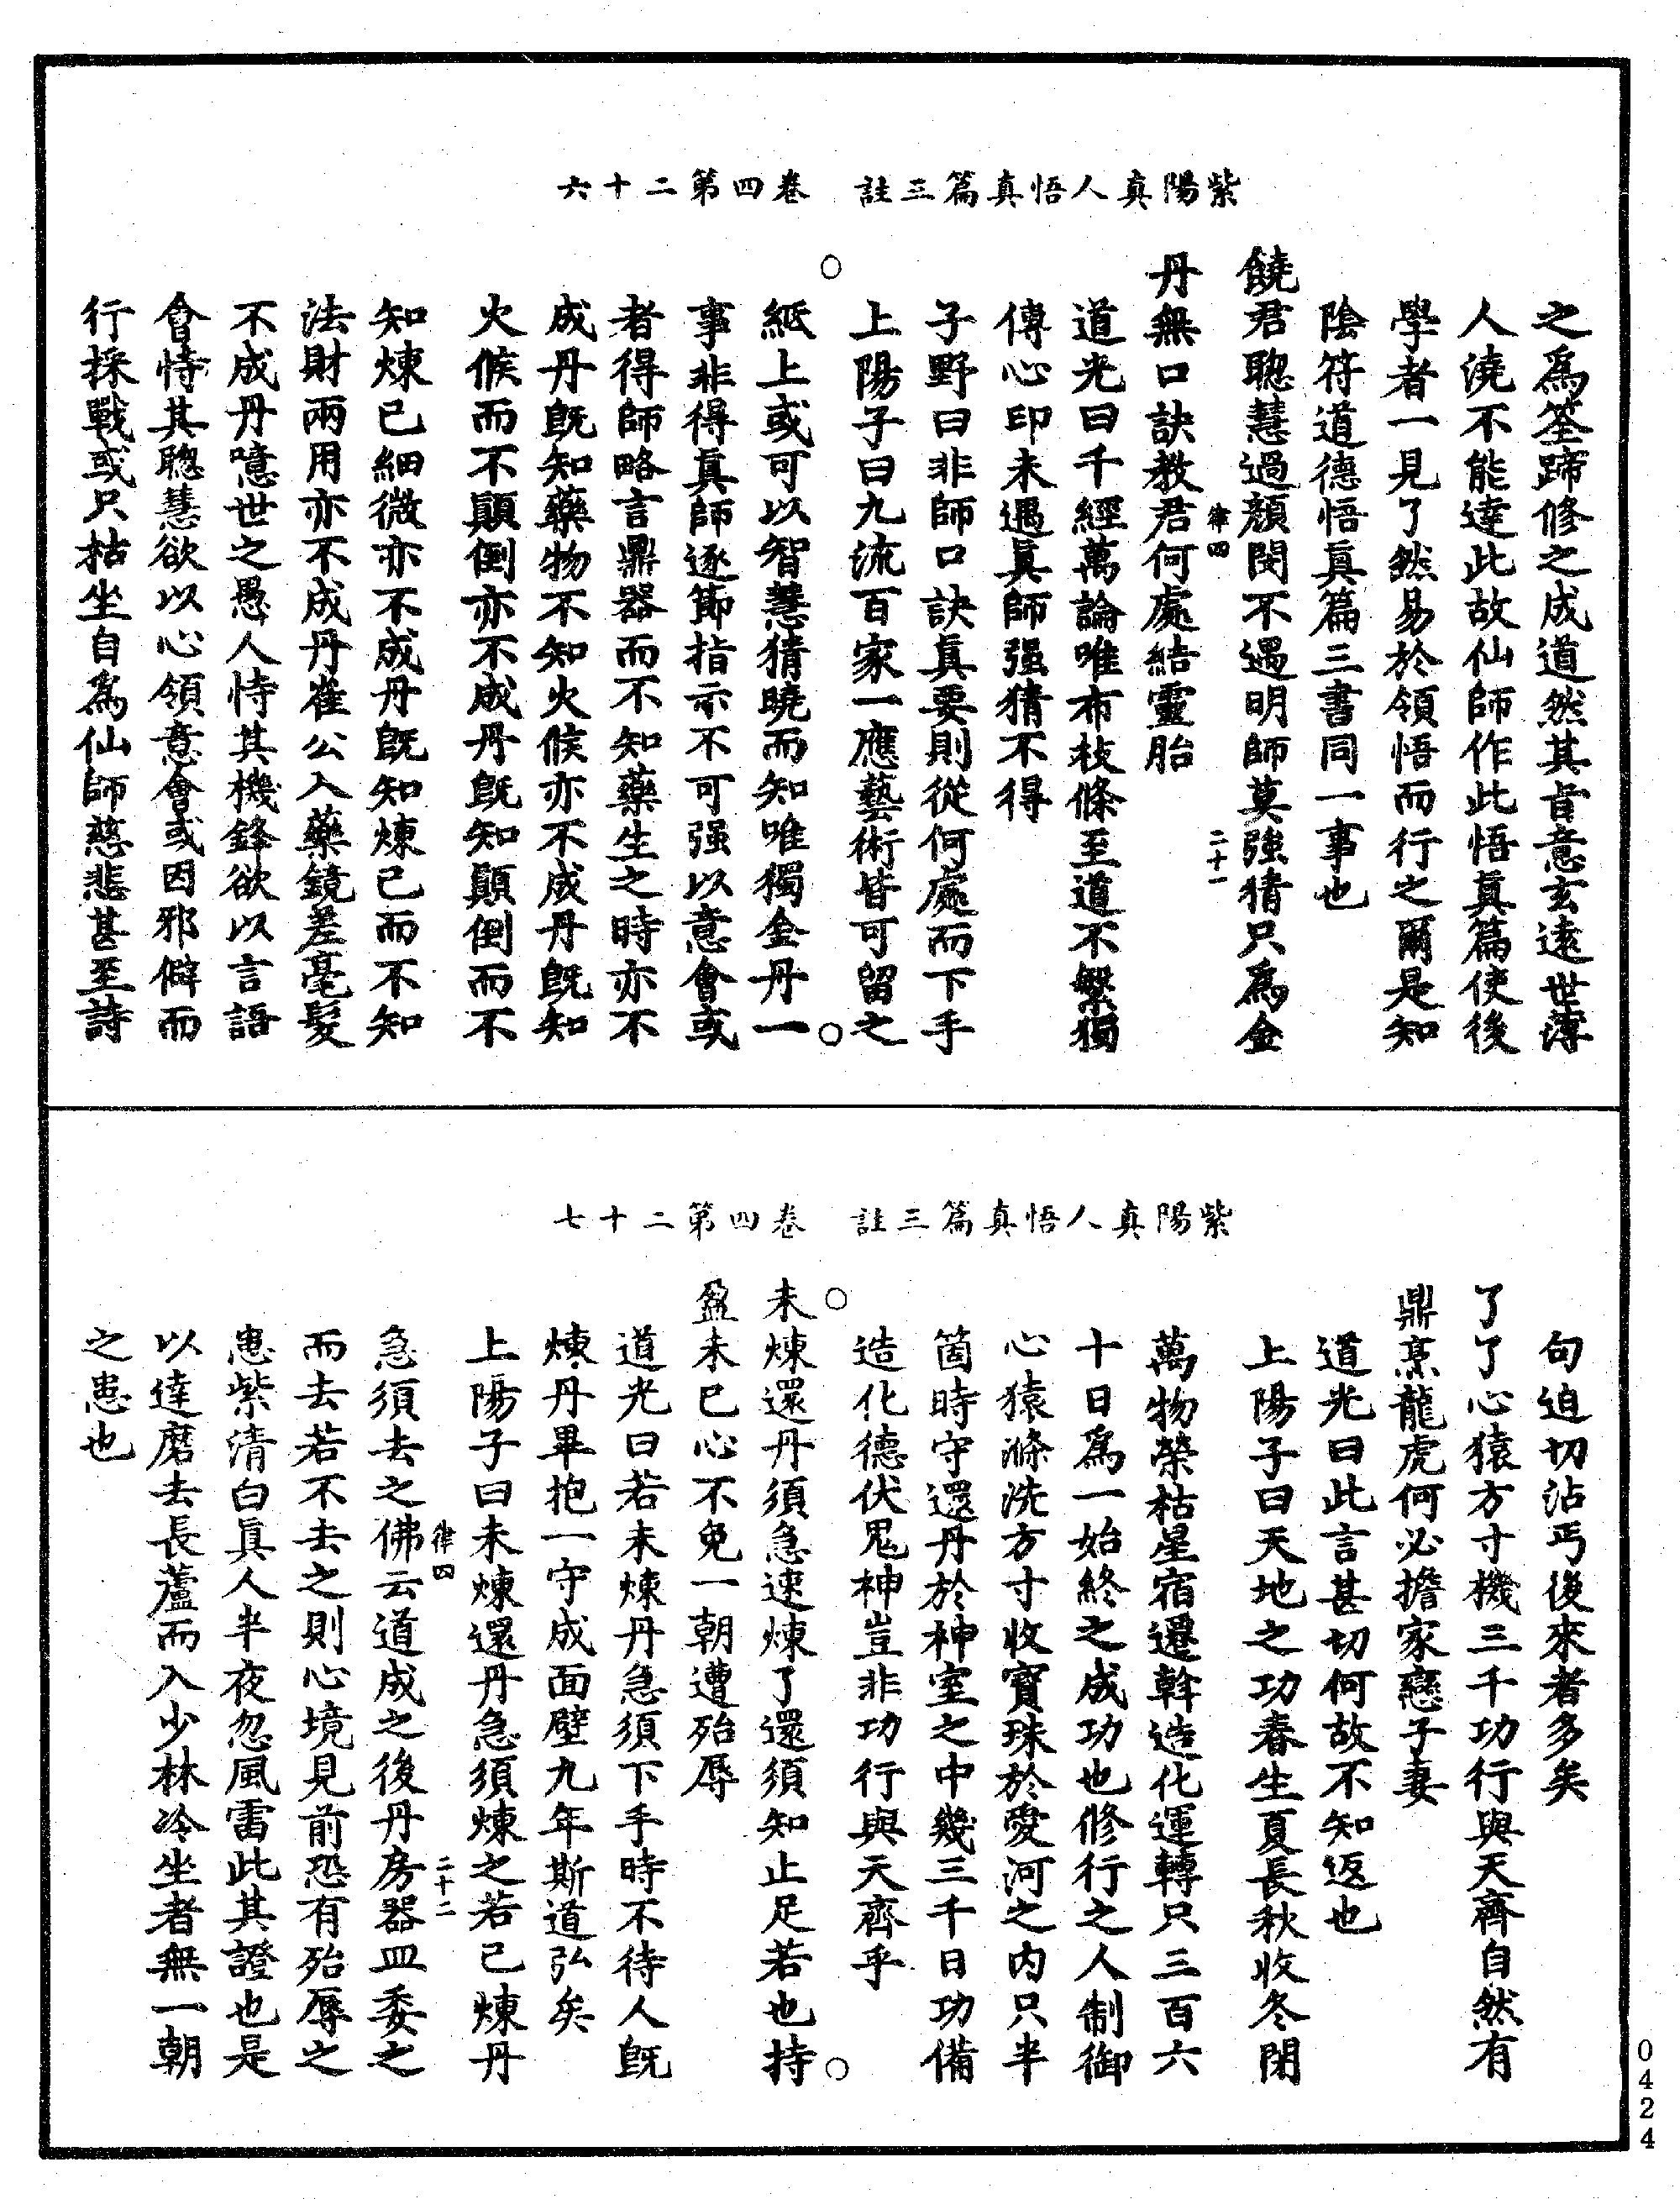 紫陽真人悟真篇三註　卷四第二十六
之爲筌蹄修之成道然其旨意玄遠世薄
人澆不能達此故仙師作此悟眞篇使後
學者一見了然易於領悟而行之爾是知
陰符道德悟眞篇三書同一事也
饒君聰慧過顏閔不遇明師莫強猜只爲金
律四　二十一
丹無口訣教君何處結靈胎
道光曰千經萬論唯布枝條至道不繁獨
傳心印未遇眞師强猜不得
子野曰非師口訣眞要則從何處而下手
上陽子曰九流百家一應藝術皆可留之
紙上或可以智慧猜曉而知唯獨金丹一
事非得眞師逐節指示不可强以意會或
者得師略言鼎器而不知藥生之時亦不
成丹旣知藥物不知火候亦不成丹旣知
火候而不顚倒亦不成丹旣知顚倒而不
知煉己細微亦不成丹旣知煉己而不知
法財兩用亦不成丹崔公入藥鏡差毫髮
不成丹噫世之愚人恃其機鋒欲以言語
會恃其聰慧欲以心領意會或因邪僻而
行採戰或只枯坐自爲仙師慈悲甚至詩
紫陽真人悟真篇三註　卷四第二十七
句迫切沾丐後來者多矣
了了心猿方寸機三千功行與天齊自然有
鼎烹龍虎何必擔家戀子妻
道光曰此言甚切何故不知返也
上陽子曰天地之功春生夏長秋收冬閉
萬物榮枯星宿遷斡造化運轉只三百六
十日爲一始終之成功也修行之人制御
心猿滌洗方寸收寶珠於愛河之內只半
箇時守還丹於神室之中幾三千日功備
造化德伏鬼神豈非功行與天齊乎
未煉還丹須急速煉了還須知止足若也持
盈未已心不免一朝遭殆辱
道光曰若未煉丹急須下手時不待人旣
煉丹畢抱一守成面壁九年斯道弘矣
上陽子曰未煉還丹急須煉之若已煉丹
律四　二十二
急須去之佛云道成之後丹房器皿委之
而去若不去之則心境見前恐有殆辱之
患紫清白眞人半夜忽風雷此其證也是
以達磨去長蘆而入少林冷坐者無一朝
之患也
0424